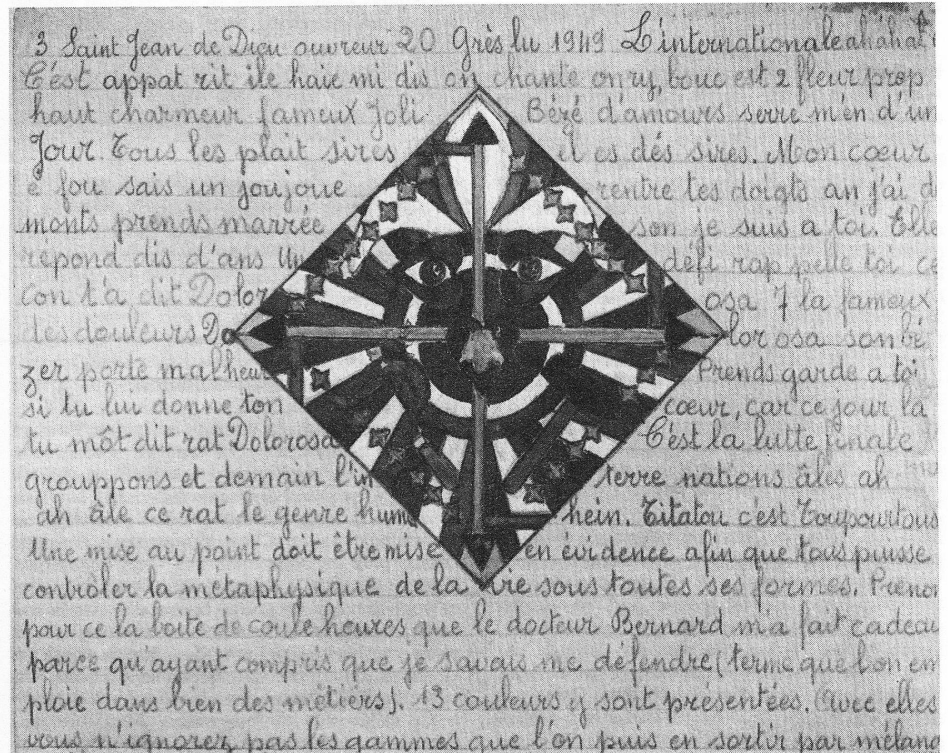 3 Saint Jean de Dieu ouvreur 20 Grès lu 1949 L'internationale ahahah
C'est appat rit ile haie mi dis on chante on ry, bouc est 2 fleur prop
haut charmeur fameux Joli Bézé d'amours serre m'en d'un
Jour. Tous les plait sires el es dés sires. Mon cœur
e fou sais un joujoue rentre tes doigts an j'ai d
monts prends marrée son je suis a toi. Elle
répond dis d'ans Un défi rap pelle toi ce
con t'a dit Dolor osa 7 la fameux
des douleurs Do lor osa son bé
zer porte malheur Prends garde a toi
si tu lui donne ton cœur, car ce jour la
tu môt dit rat Dolorosa C'est la lutte finale
grouppons et demain l'in terre nations âles ah
ah âle ce rat le genre huma hein. Titatou c'est Toupourtous
Une mise au point doit être mise en évidence afin que tous puisse
contrôler la métaphysique de la vre sous toutes ses formes. Prenon
pour ce la boite de coule heures que le docteur Bernard m'a fait cadeau
parce qu'ayant compris que je savais me défendre (terme que l'on em
ploie dans bien des métiers). 13 couleurs y sont présentées. Avec elles
vous n'ignorez pas les gammes que l'on puis en sortir par mélang